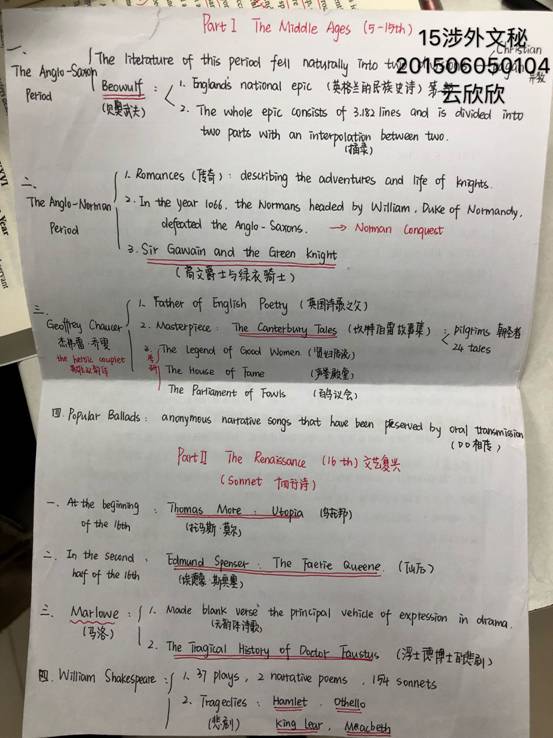 Part I The Middle Ages (5-15th)
15涉外文秘
201506050104
云欣欣
一、The Anglo-Saxon Period
The literature of this period fell naturally into two
Christian
Beowulf : 1. England's national epic (英格兰的民族史诗) 第一
(贝奥武夫)
2. The whole epic consists of 3.182 lines and is divided into
two parts with an interpolation between two.
二、The Anglo-Norman Period
1. Romances (传奇) : describing the adventures and life of knights.
2. In the year 1066, the Normans headed by William, Duke of Normandy,
defeated the Anglo-Saxons. → Norman Conquest
3. Sir Gawain and the Green Knight
(高文爵士与绿衣骑士)
三、Geoffrey Chaucer
杰弗雷·乔叟
the heroic couplet
英雄双韵体
1. Father of English Poetry (英国诗歌之父)
2. Masterpiece: The Canterbury Tales (坎特伯雷故事集) : pilgrims 朝圣者
24 tales
3. The Legend of Good Women
The House of Fame (声誉殿堂)
The Parliament of Fowls (百鸟议会)
四. Popular Ballads: anonymous narrative songs that have been preserved by oral transmission
(口口相传)
Part II The Renaissance (16th) 文艺复兴
(Sonnet 十四行诗)
一、At the beginning of the 16th : Thomas More : Utopia (乌托邦)
(托马斯·莫尔)
二、In the second half of the 16th : Edmund Spenser : The Faerie Queene. (仙后)
(埃德蒙·斯宾塞)
三、Marlowe : 1. Made blank verse the principal vehicle of expression in drama.
(马洛) (无韵体诗歌)
2. The Tragical History of Doctor Faustus (浮士德博士的悲剧)
四. William Shakespeare : 1. 37 plays, 2 narrative poems, 154 sonnets
2. Tragedies: Hamlet, Othello
(悲剧) King Lear, Macbeth